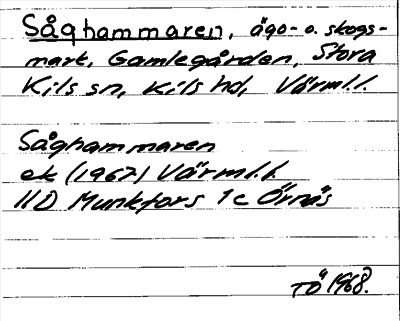 Såghammaren, ägo- o. skogs-
mark, Gamlegården, Stora
Kils sn, Kils hd, Värml.l.
Såghammaren
ek (1967) Värml.l.
11D Munkfors 1c Örnäs
TÖ 1968.